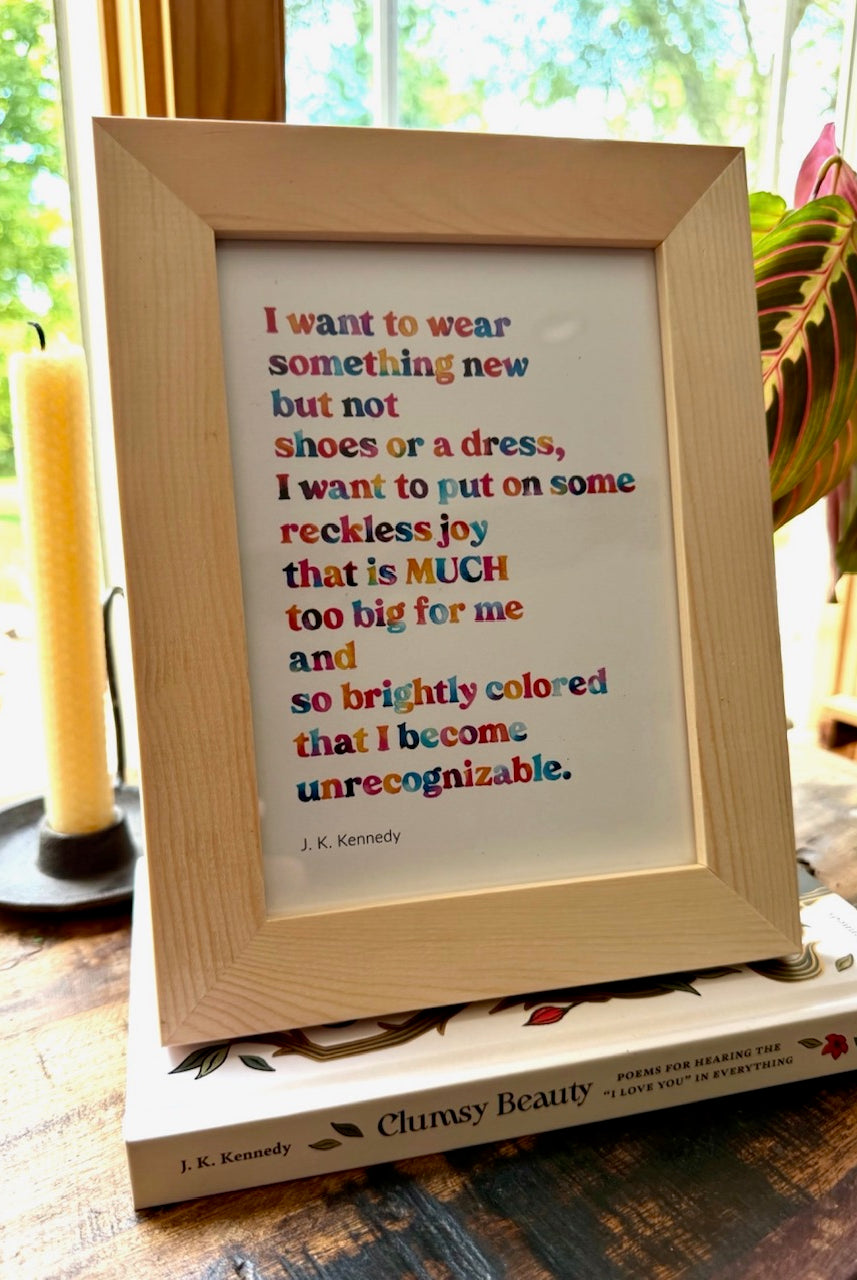 I want to wear
something new
but not
shoes or a dress,
I want to put on some
reckless joy
that is MUCH
too big for me
and
so brightly colored
that I become
unrecognizable.
J. K. Kennedy
J. K. Kennedy
Clumsy Beauty
POEMS FOR HEARING THE
"I LOVE YOU" IN EVERYTHING